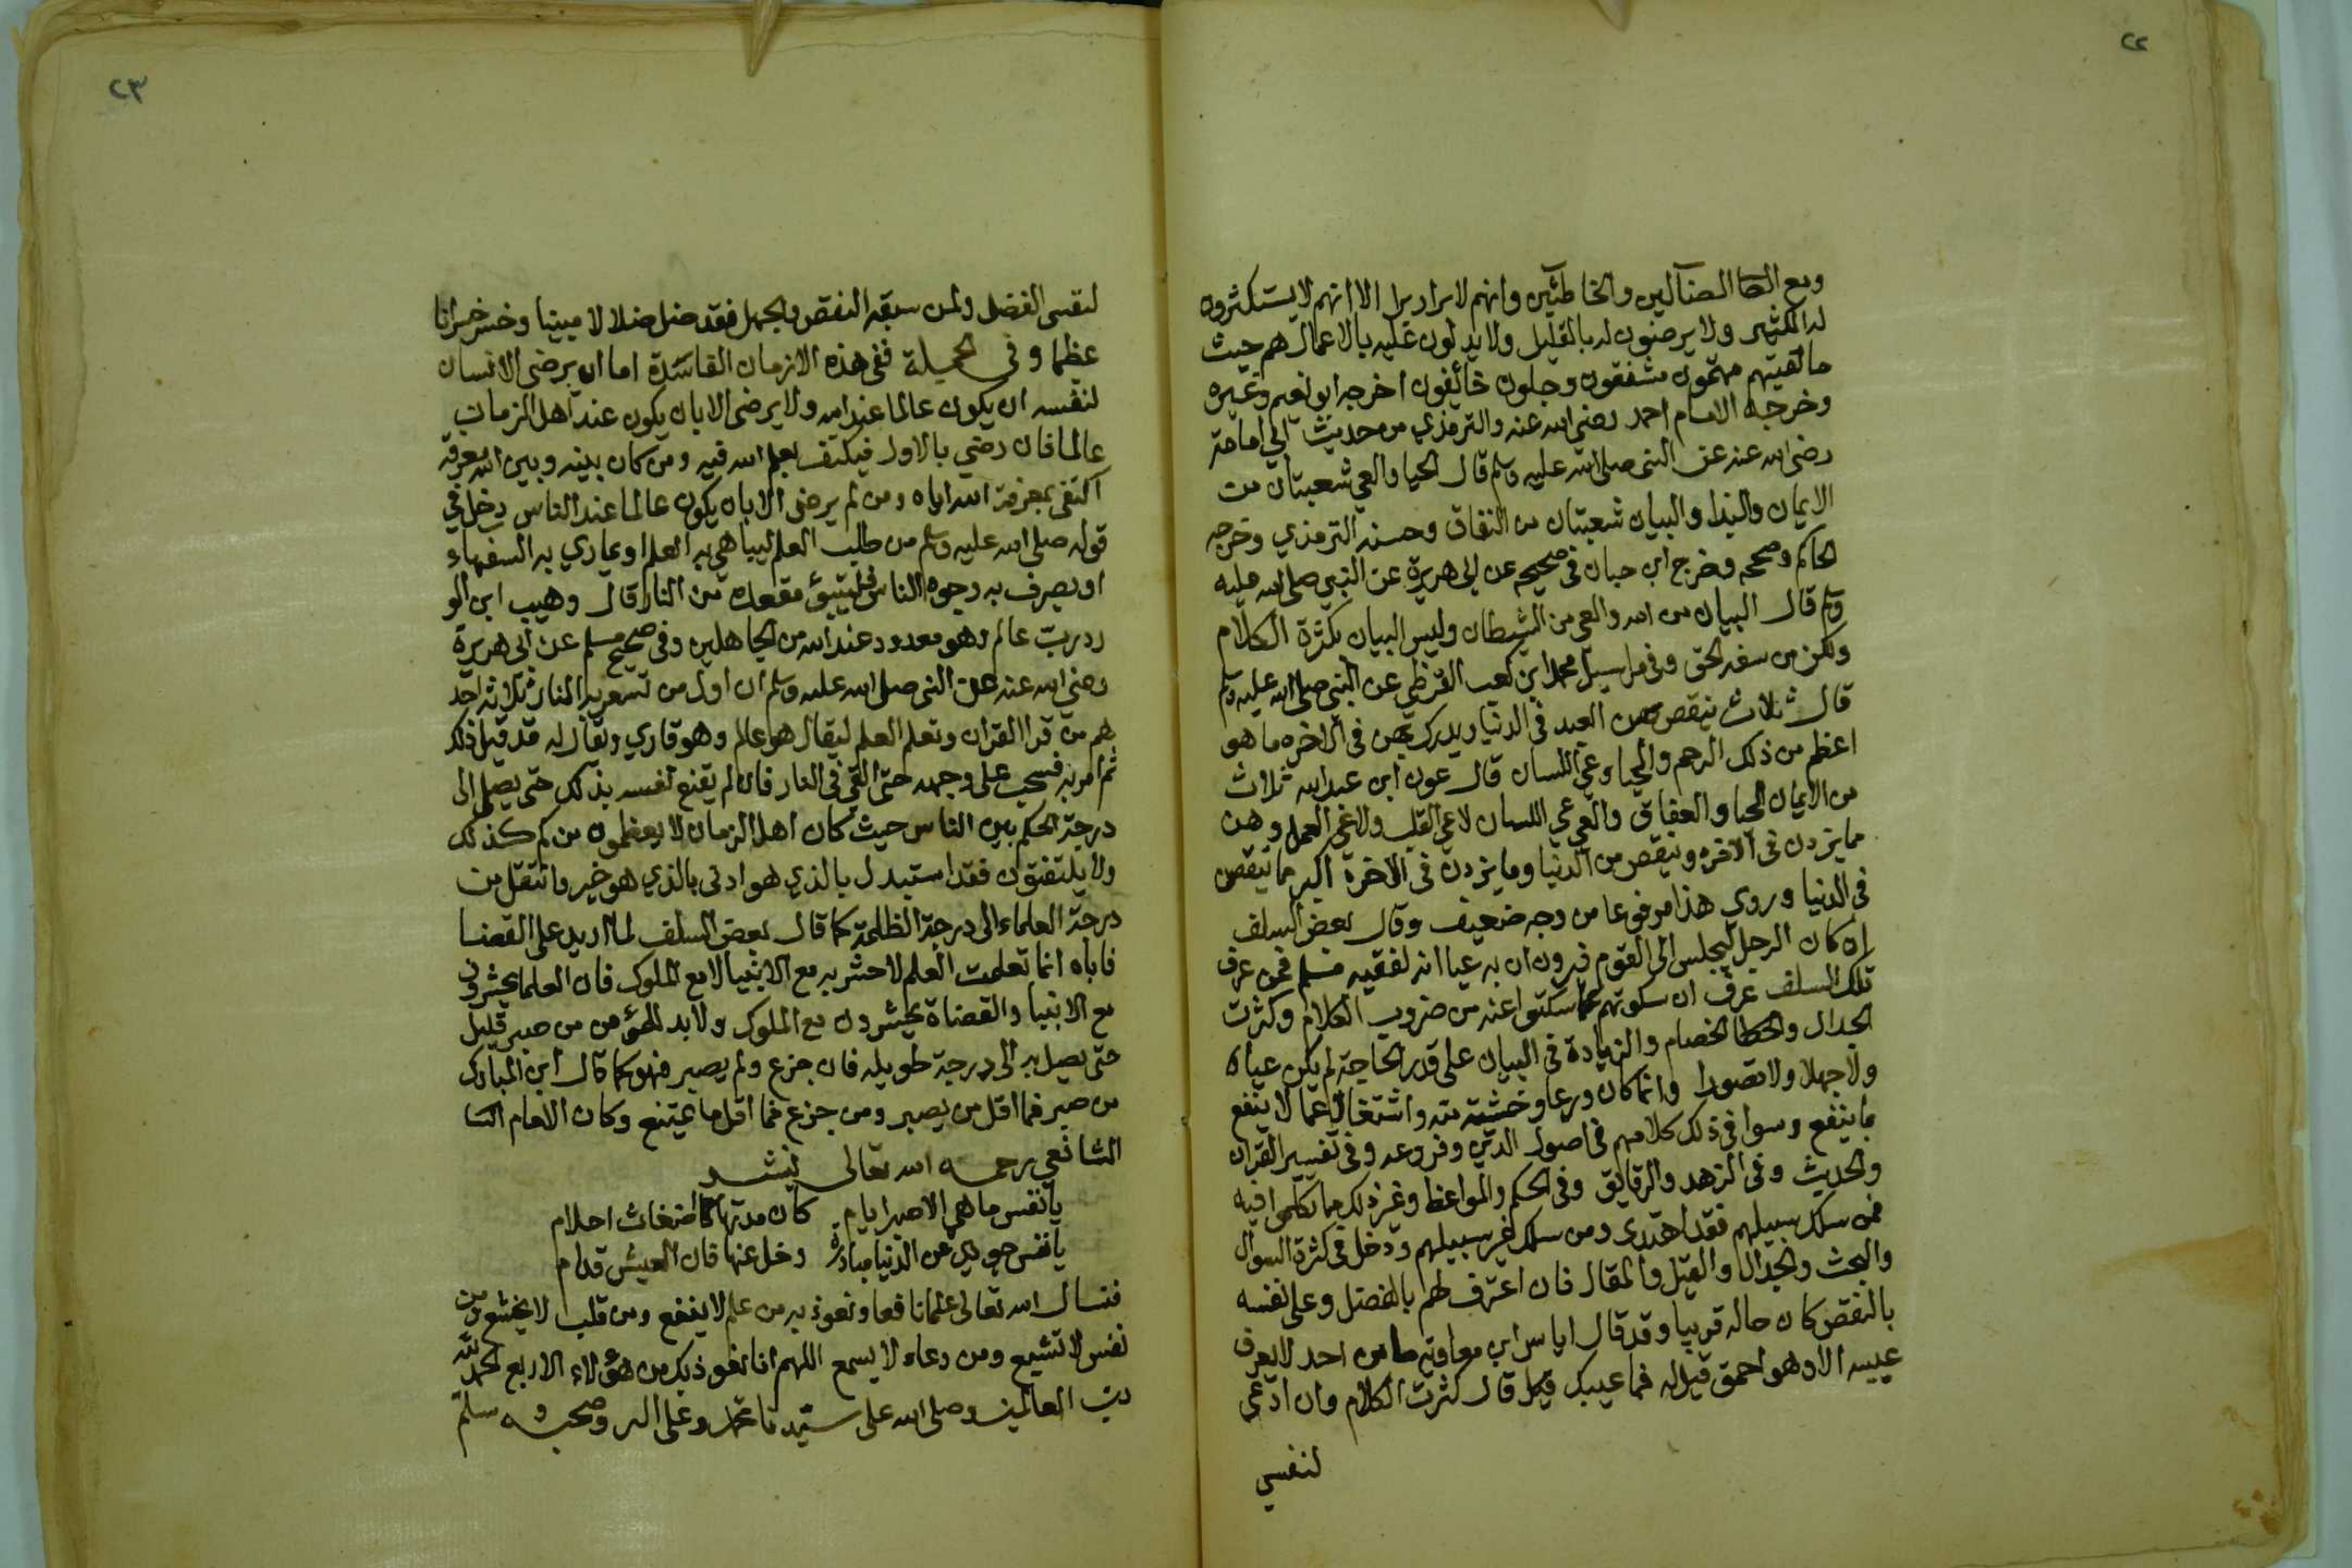 ٢٢
ومع الضا الضآلين والخاطئين وانهم لابرار برا الا انهم لا يستكثرون
له الكثير ولا يرضون له بالقليل ولا يدلون عليه بالاعمال هم حيث
ما لقيتهم مهتمون مشفقون وجلون خائفون اخرجه ابو نعيم وغيره
وخرجه الامام احمد رضي الله عنه والترمذي من حديث ابي امامة
رضي الله عنه عن النبي صلى الله عليه وسلم قال الحيا والعي شعبتان من
الايمان والبذا والبيان شعبتان من النفاق وحسنه الترمذي وخرجه
الحاكم وصححه وخرج ابن حبان في صحيحه عن ابي هريرة عن النبي صلى الله عليه
وسلم قال البيان من الله والعي من الشيطان وليس البيان بكثرة الكلام
ولكن من سفه الحق وفي مراسيل محمد ابن كعب القرظي عن النبي صلى الله عليه وسلم
قال ثلاث ينقص بهن العبد في الدنيا ويدرك بهن في الاخره ما هو
اعظم من ذلك الرحم والحيا وعي اللسان قال عون ابن عبد الله ثلاث
من الايمان الحيا والعفاف والعي عي اللسان لا عي القلب ولا عي العمل وهن
مما يزدن في الاخره وينقص من الدنيا وما يزدن في الاخرة اكبر مما ينقصن
في الدنيا وروي هذا مرفوعا من وجه ضعيف وقال بعض السلف
ان كان الرجل ليجلس الى القوم فيرون ان به عيا انه لفقيه مسلم فمن عرف
تلك السلف عرف ان سكوتهم عما سكتوا عنه من ضروب الكلام وكثرت
الجدال والخطا الخصام والزيادة في البيان على قدر الحاجة لم يكن عياه
ولا جهلا ولا قصورا وانما كان ورعا وخشية لله واشتغالا عما لا ينفع
بما ينفع وسوا في ذلك كلامهم في اصول الدين وفروعه وفي تفسير القران
والحديث وفي الزهد والرقايق وفي الحكم والمواعظ وغير ذلك مما تكلموا فيه
فمن سلك سبيلهم فقد اهتدى ومن سلك غير سبيلهم ودخل في كثرة السوال
والبحث والجدال والقيل والمقال فان اعترف لهم بالفضل وعلى نفسه
بالنقص كان حاله قريبا وقد قال اياس ابن معاوية ما من احد لا يعرف
عيبه الا وهو احمق قيل له فما عيبك قيل قال كثرت الكلام وان ادعى
لنفسي
٢٣
لنفسى الفضل ولمن سبقه النقص والجهل فقد ضل ضلالا مبينا وخسر خسرانا
عظيما وفي الجميلة ففي هذه الازمان الفاسدة اما ان يرضى الانسان
لنفسه ان يكون عالما عند الله ولا يرضى الا بان يكون عند اهل الزمان
عالما فان رضي بالاول فيكتف بعلم الله فيه ومن كان بينه وبين الله معرفة
اكتفى بمعرفة الله اياه ومن لم يرضى الا بان يكون عالما عند الناس دخل في
قوله صلى الله عليه وسلم من طلب العلم ليباهي به العلما او يماري به السفهاء
او يصرف به وجوه الناس فليتبوئ مقعده من النار قال وهيب ابن الو
ردرب عالم وهو معدود عند الله من الجاهلين وفي صحيح مسلم عن ابي هريرة
رضي الله عنه عن النبي صلى الله عليه وسلم ان اول من تسعر به النار ثلاثة احد
هم من قرا القران وتعلم العلم ليقال هو عالم وهو قاري ويقال له قد قيل ذلك
ثم امر به فسحب على وجهه حتى القي في النار فان لم يقنع نفسه بذلك حتى يصل الى
درجة الحكم بين الناس حيث كان اهل الزمان لا يعظمون من لم كذلك
ولا يلتفتون فقد استبدل بالذي هو ادنى بالذي هو خير وانتقل من
درجة العلماء الى درجة الظلمة كما قال بعض السلف لما اريد على القضا
فاباه انما تعلمت العلم لاحشر به مع الانبيا لا مع الملوك فان العلما يحشرون
مع الانبيا والقضاة يحشرون مع الملوك ولا بد للمؤمن من صبر قليل
حتى يصل به الى درجة طويله فان جزع ولم يصبر فهو كما قال ابن المبارك
من صبر فما اقل من يصبر ومن جزع فما اقل ما يتمتع وكان الامام الشا
الشافعي رحمه الله تعالى ينشد
يا نفس ما هي الا صبر ايام كان مدتها اضغاث احلام
يا نفس جوزي عن الدنيا مبادرة وخل عنها فان العيش قدام
فنسال الله تعالى علما نافعا ونعوذ به من علم لا ينفع ومن قلب لا يخشع ومن
نفس لا تشبع ومن دعاء لا يسمع اللهم انا نعوذ بك من هؤلاء الاربع الحمد لله
رب العالمين وصلى الله على سيدنا محمد وعلى اله وصحبه وسلم